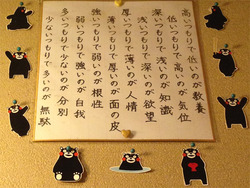 高いつもりで低いのが教養
低いつもりで高いのが気位
深いつもりで浅いのが知識
浅いつもりで深いのが欲望
厚いつもりで薄いのが人情
薄いつもりで厚いのが面の皮
強いつもりで弱いのが根性
弱いつもりで強いのが自我
多いつもりで少ないのが分別
少ないつもりで多いのが無駄